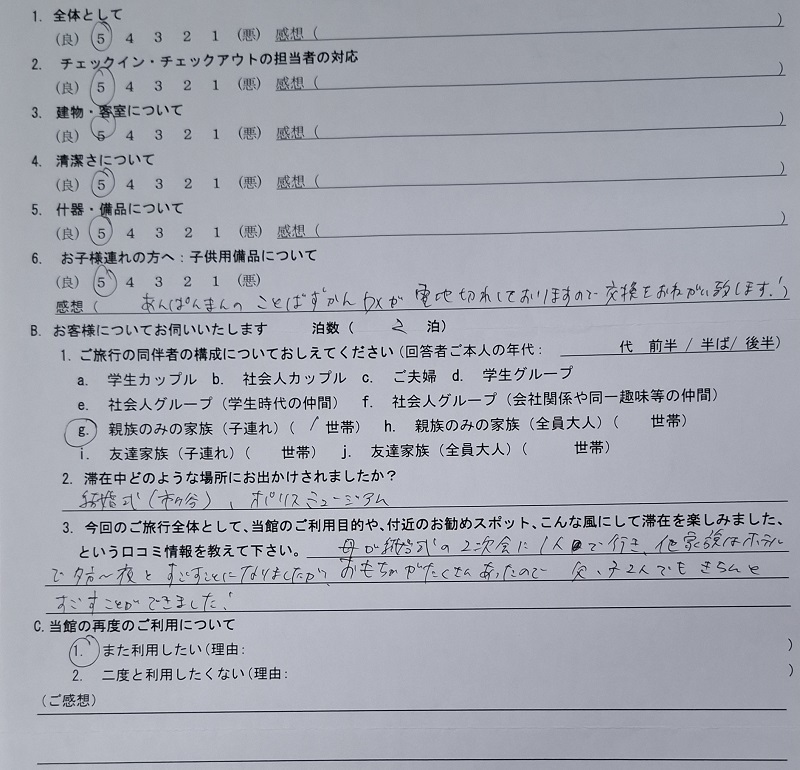 1. 全体として
(良) 5 4 3 2 1 (悪) 感想 ( )
2. チェックイン・チェックアウトの担当者の対応
(良) 5 4 3 2 1 (悪) 感想 ( )
3. 建物・客室について
(良) 5 4 3 2 1 (悪) 感想 ( )
4. 清潔さについて
(良) 5 4 3 2 1 (悪) 感想 (
5. 什器・備品について
(良) 5 4 3 2 1 (悪) 感想 ( )
6. お子様連れの方へ:子供用備品について
(良) 5 4 3 2 1 (悪)
感想 ( あんぱんまんの ことばずかんDXが 電池切れしておりますので 交換をおねがい致します! )
B. お客様についてお伺いいたします 泊数 ( 2 泊)
1. ご旅行の同伴者の構成についておしえてください(回答者ご本人の年代: 代 前半 / 半ば/ 後半)
a. 学生カップル b. 社会人カップル c. ご夫婦 d. 学生グループ
e. 社会人グループ(学生時代の仲間) f. 社会人グループ(会社関係や同一趣味等の仲間)
g. 親族のみの家族(子連れ)( / 世帯) h. 親族のみの家族(全員大人)( 世帯)
i. 友達家族(子連れ)( 世帯) j. 友達家族(全員大人)( 世帯)
2. 滞在中どのような場所にお出かけされましたか?
結婚式(市ヶ谷)、ポリスミュージアム
3. 今回のご旅行全体として、当館のご利用目的や、付近のお勧めスポット、こんな風にして滞在を楽しみました、
という口コミ情報を教えて下さい。 母が結婚式の2次会に1人で行き、他家族はホテル
で夕方〜夜とすごすことになりましたが、おもちゃがたくさんあったので 父、子2人でもきちんと
すごすことができました!
C.当館の再度のご利用について
1. また利用したい(理由: )
2. 二度と利用したくない(理由: )
(ご感想)